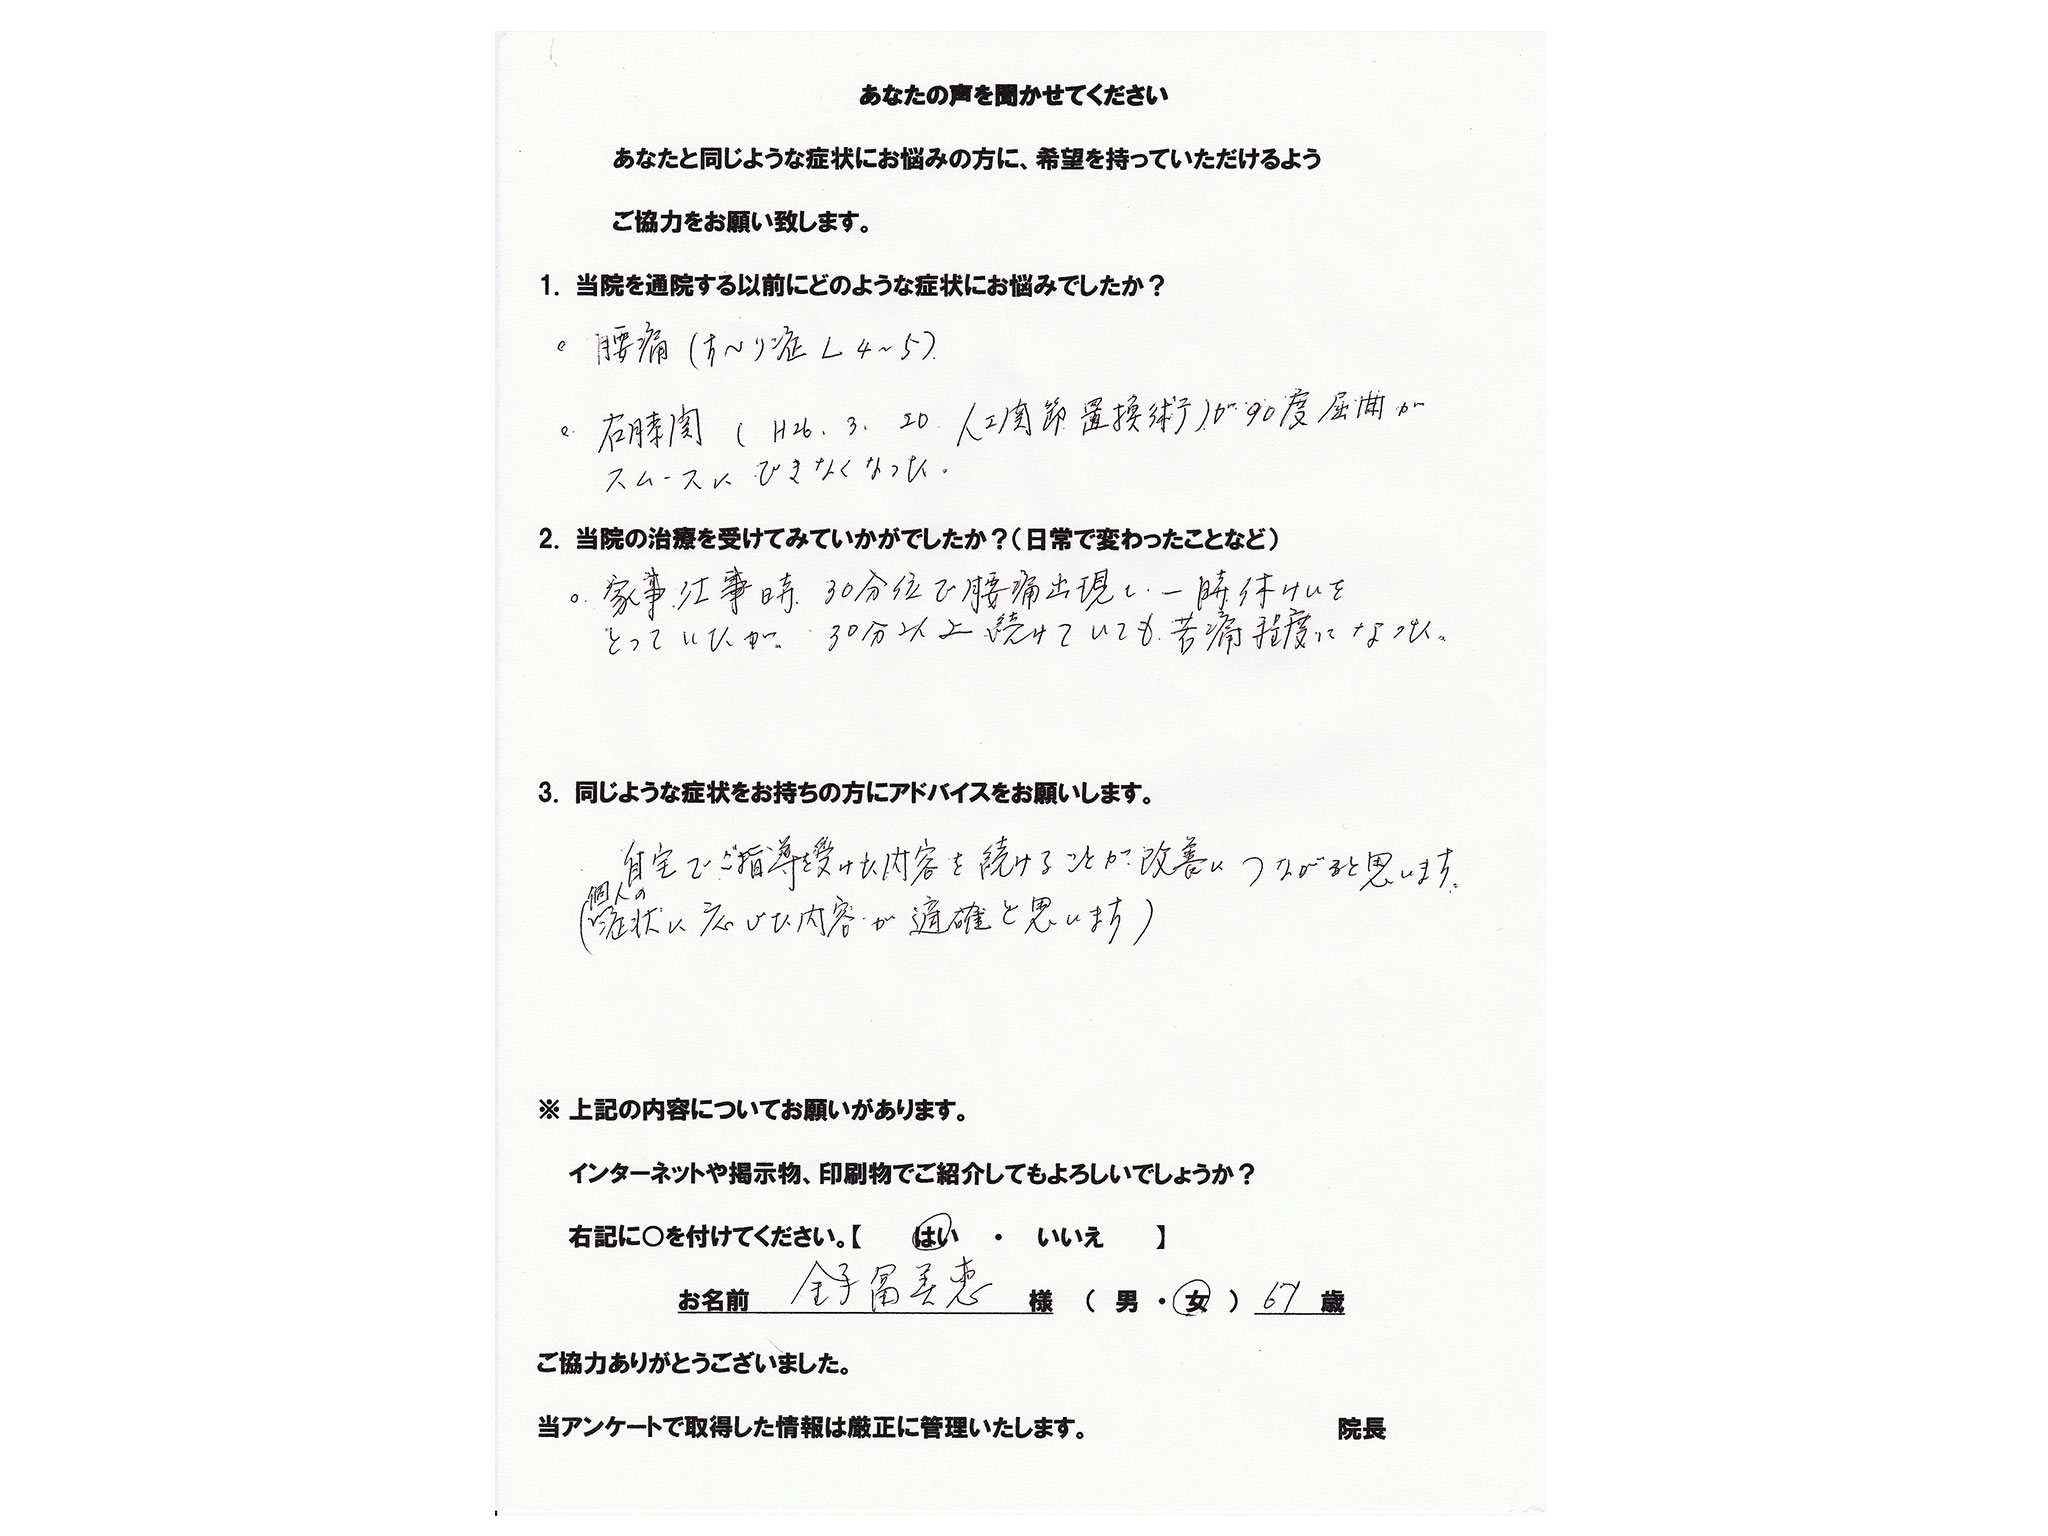 あなたの声を聞かせてください
あなたと同じような症状にお悩みの方に、希望を持っていただけるよう
ご協力をお願い致します。
1. 当院を通院する以前にどのような症状にお悩みでしたか？
。腰痛(すべり症L4~5).
。右膝関(H26.3.20.人工関節置換術)が90度屈曲が
スムースにできなくなった。
2. 当院の治療を受けてみていかがでしたか？（日常で変わったことなど）
。家事.仕事時.30分位で腰痛出現し.一時休けいを
とっていたが。30分以上続けていても.苦痛程度になった。
3. 同じような症状をお持ちの方にアドバイスをお願いします。
自宅でご指導を受けた内容を続けることが.改善につながると思います。
(個人の症状に応じた内容が適確と思います)
※ 上記の内容についてお願いがあります。
インターネットや掲示物、印刷物でご紹介してもよろしいでしょうか？
右記に〇を付けてください。【 はい ・ いいえ 】
お名前 金子冨美恵 様 （ 男 ・ 女 ） 歳
ご協力ありがとうございました。
当アンケートで取得した情報は厳正に管理いたします。 院長